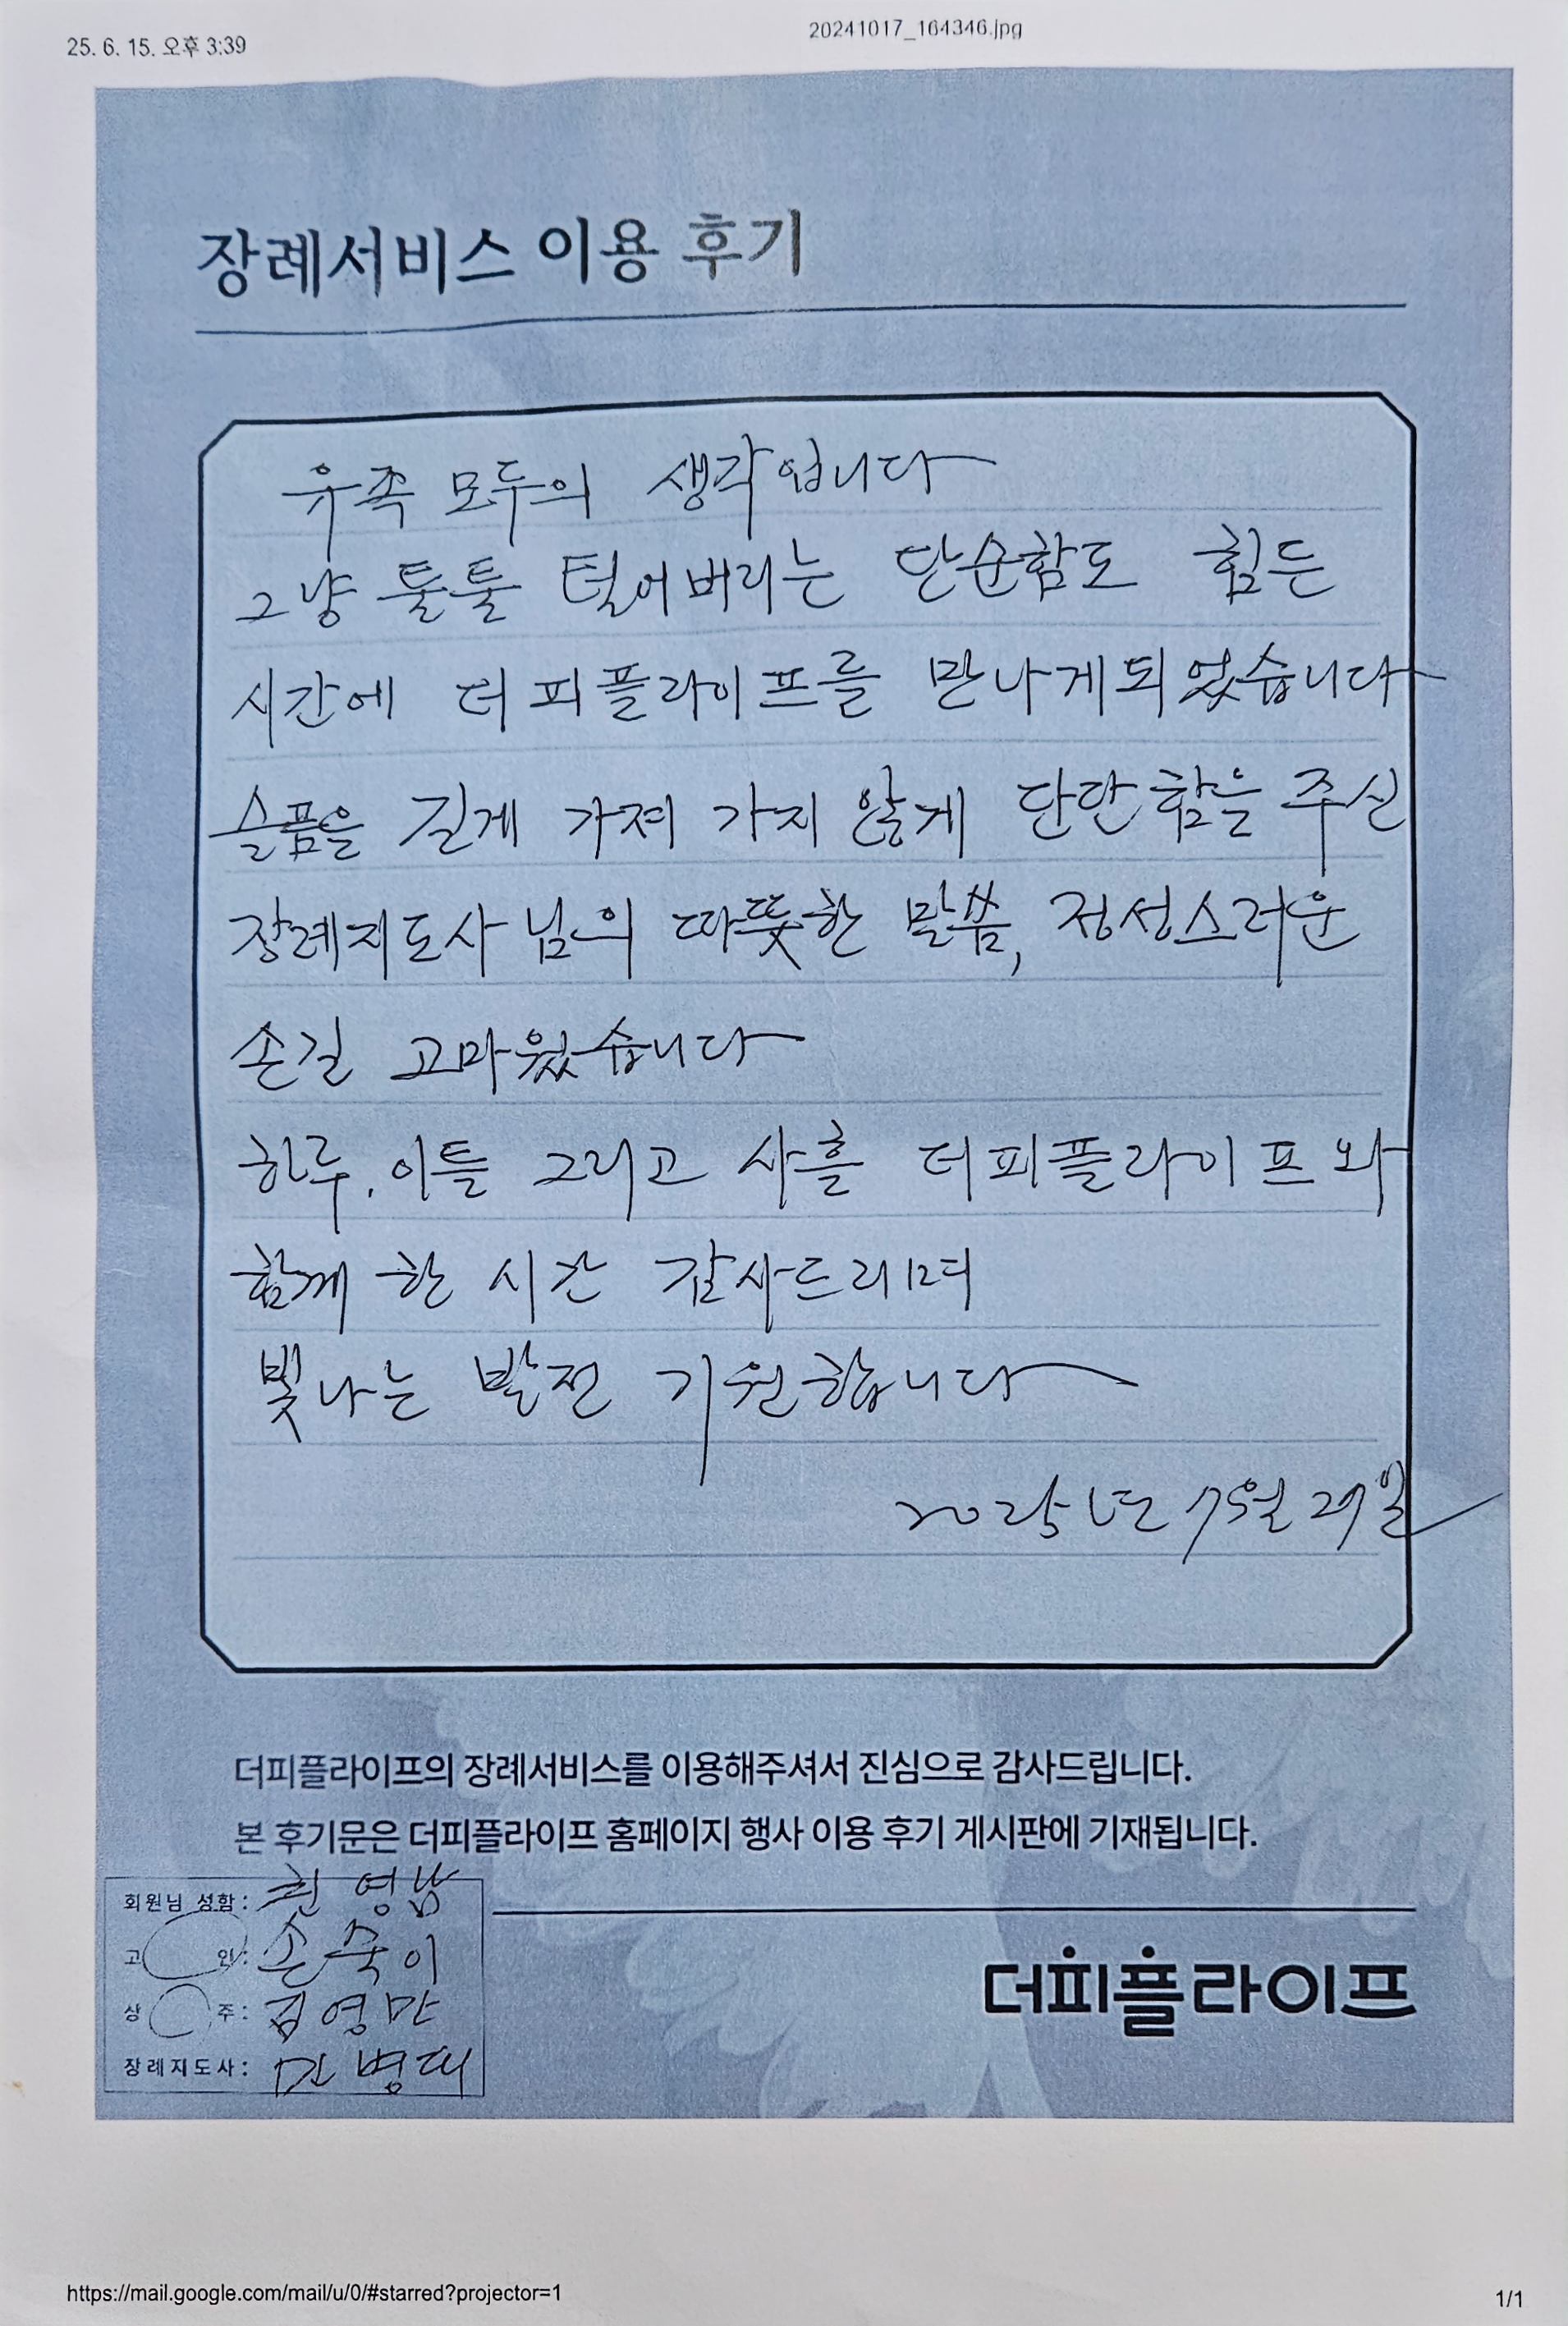 25. 6. 15. 오후 3:39
20241017_164346.jpg
장례서비스 이용 후기
유족 모두의 생각입니다
그냥 툴툴 털어버리는 단순함도 힘든
시간에 더피플라이프를 만나게되었습니다
슬픔을 길게 가져 가지 않게 단단함을 주신
장례지도사님의 따뜻한 말씀, 정성스러운
손길 고마웠습니다
하루, 이틀 그리고 사흘 더피플라이프와
함께 한 시간 감사드리며
빛나는 발전 기원합니다
2025년 7월 27일
더피플라이프의 장례서비스를 이용해주셔서 진심으로 감사드립니다.
본 후기문은 더피플라이프 홈페이지 행사 이용 후기 게시판에 기재됩니다.
회원님 성함: 영남
고 인: 손숙이
상 주: 김영만
장례지도사: 민병대
더피플라이프
https://mail.google.com/mail/u/0/#starred?projector=1
1/1